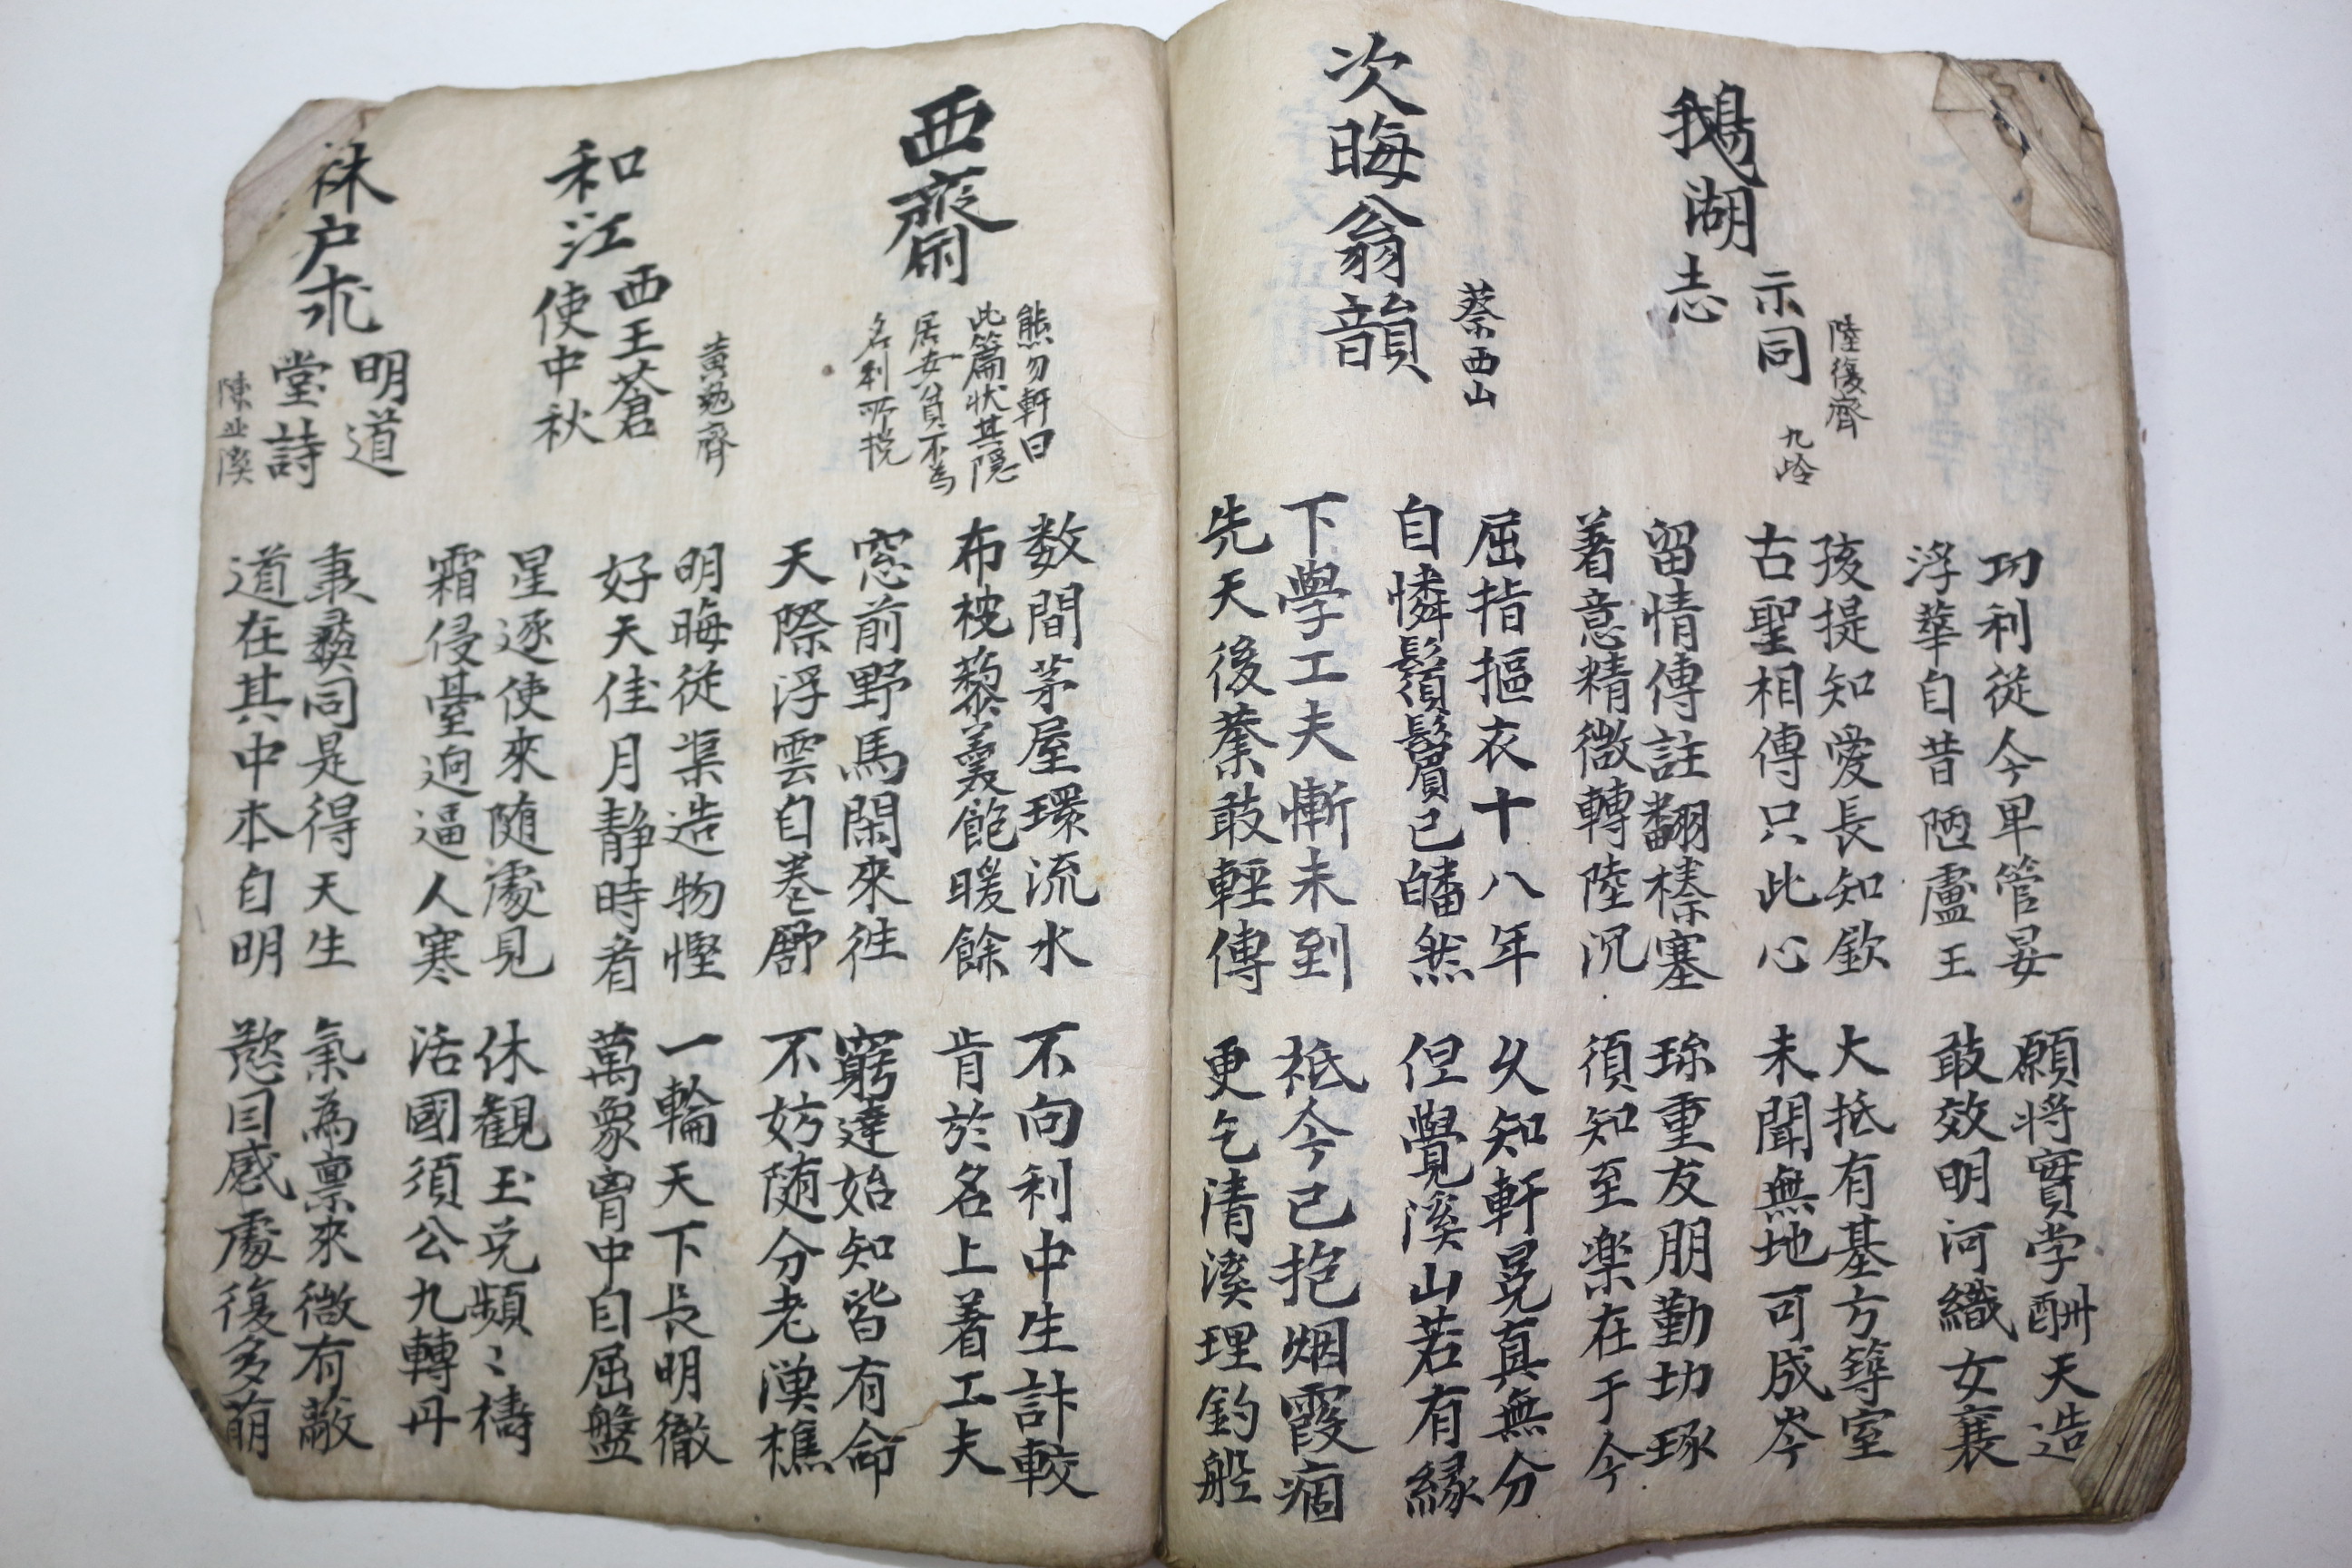 功利從今卑管晏
願將實学酬天造
浮華自昔陋盧王
敢效明河織女襄
鵝湖示同志
陸復齋
九岭
孩提知愛長知欽
大抵有基方築室
古聖相傳只此心
未聞無地可成岑
留情傳註翻榛塞
珎重友朋勤切琢
着意精微轉陸沉
須知至楽在于今
次晦翁韻
蔡西山
屈指摳衣十八年
久知軒冕真無分
自憐鬚鬢已皤然
但覺溪山若有縁
下學工夫慚未到
祗今已抱烟霞痼
先天後蔡敢輕傳
更乞清溪理釣船
西齋
熊勿軒曰
此篇狀其隠
居安貧不為
名利所挠
数間茅屋環流水
不向利中生計較
布被藜羹飽暖餘
肯於名上着工夫
窓前野馬閑來徃
窮達始知皆有命
天際浮雲自巻舒
不妨随分老漁樵
和江西王蒼使中秋
黄勉齊
明晦從渠造物慳
一輪天下長明徹
好天佳月静時看
萬象胷中自屈盤
星逐使來随處見
休觀玉兎頻〻擣
霜侵臺逈逼人寒
活國須公九轉丹
明道堂詩
陳
秉彝同是得天生
氣為禀來微有蔽
道在其中本自明
慾因感處復多萌